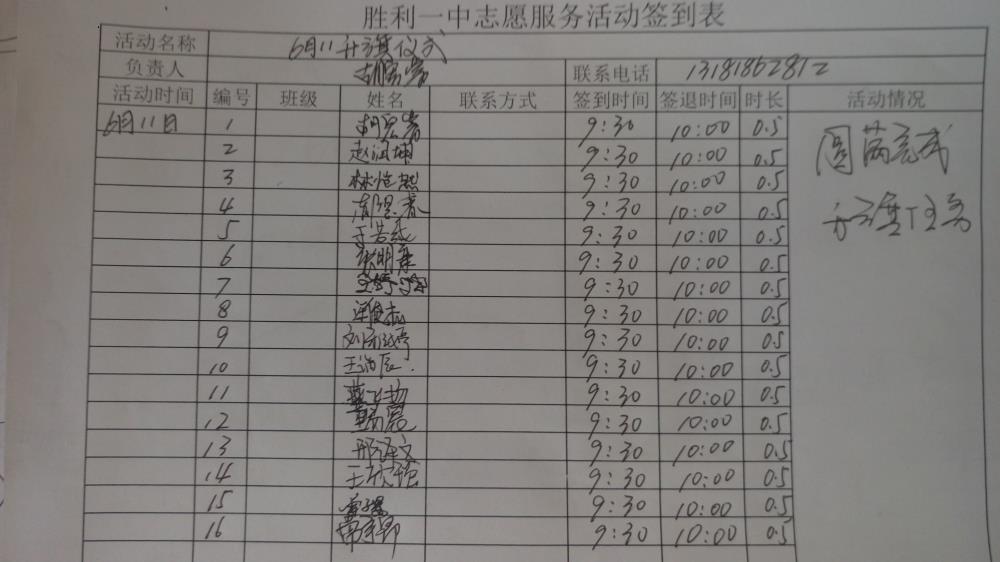 胜利一中志愿服务活动签到表
活动名称 6月11升旗仪式
负责人 联系电话 13181862812
活动时间 编号 班级 姓名 联系方式 签到时间 签退时间 时长 活动情况
6月11日 1 9:30 10:00 0.5 圆满完成
2 9:30 10:00 0.5
3 林恺然 9:30 10:00 0.5
4 9:30 10:00 0.5 升旗任务
5 9:30 10:00 0.5
6 9:30 10:00 0.5
7 9:30 10:00 0.5
8 9:30 10:00 0.5
9 9:30 10:00 0.5
10 9:30 10:00 0.5
11 9:30 10:00 0.5
12 9:30 10:00 0.5
13 邢译文 9:30 10:00 0.5
14 9:30 10:00 0.5
15 9:30 10:00 0.5
16 9:30 10:00 0.5